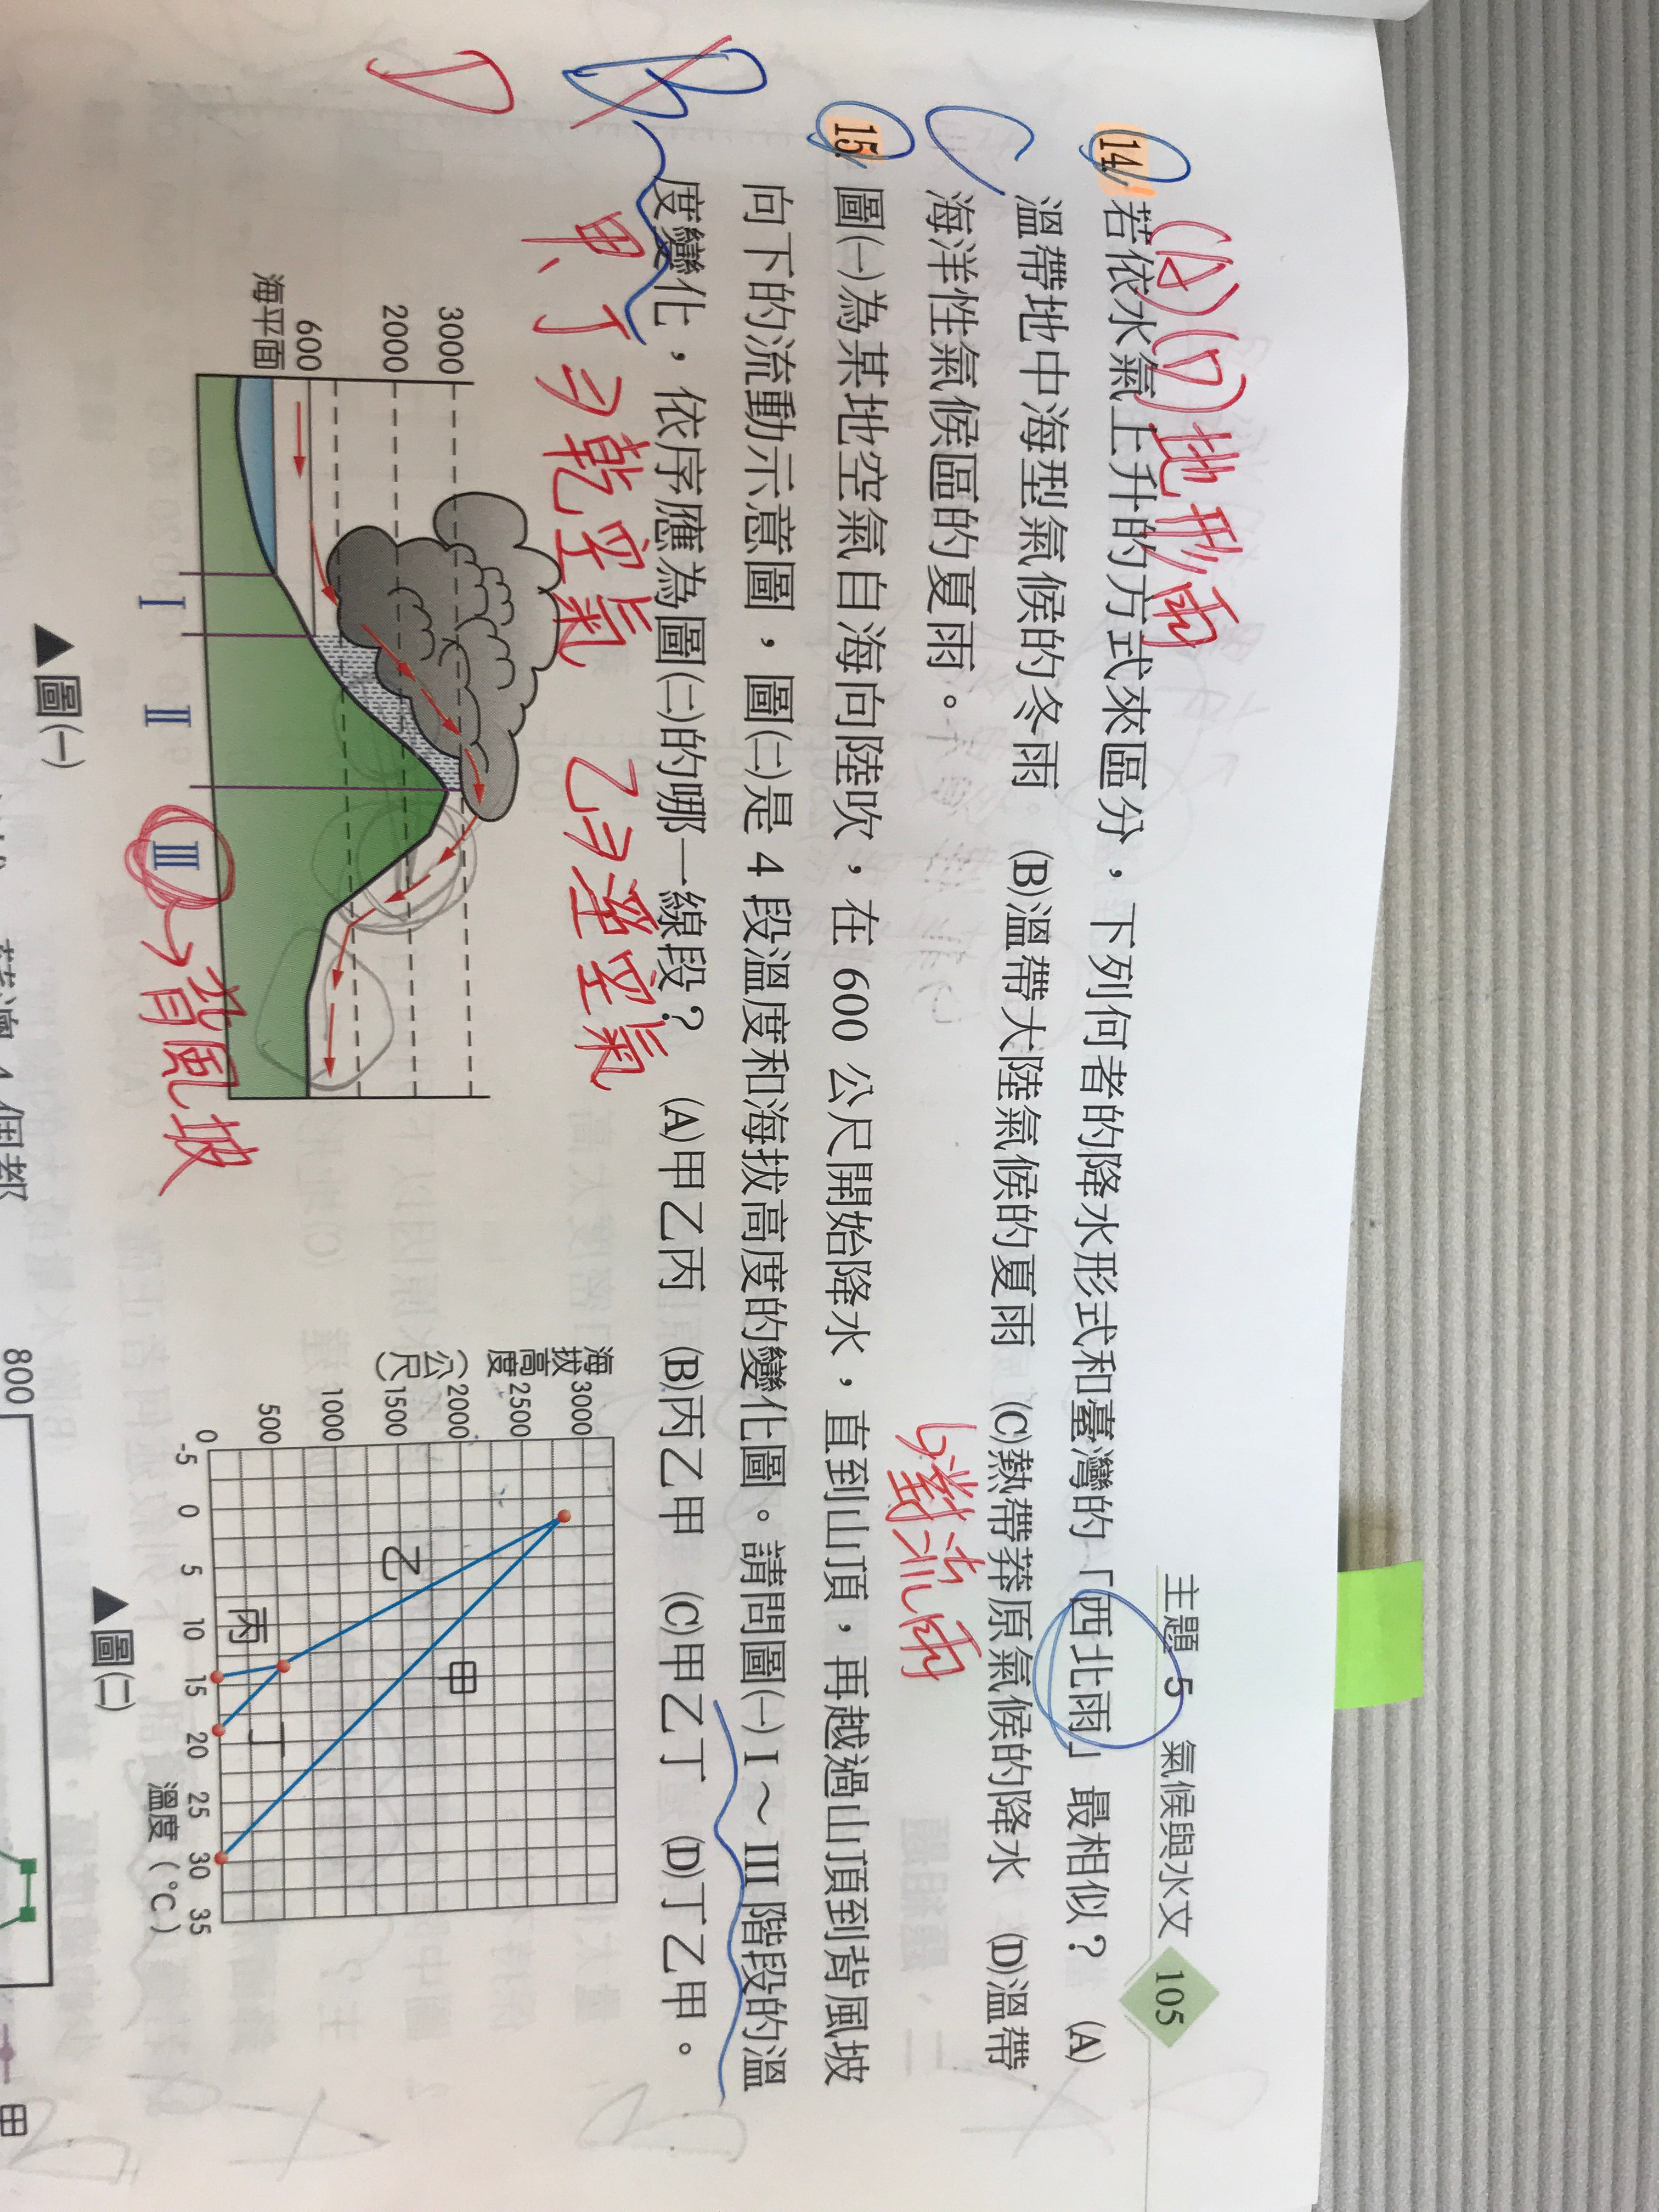 主題 5 氣候與水文 105
(A)(D)地形雨
14. 若依水氣上升的方式來區分，下列何者的降水形式和臺灣的「西北雨」最相似？ (A)
溫帶地中海型氣候的冬雨 (B)溫帶大陸氣候的夏雨 (C)熱帶莽原氣候的降水 (D)溫帶
C
海洋性氣候區的夏雨。
↳對流雨
15. 圖㈠為某地空氣自海向陸吹，在 600 公尺開始降水，直到山頂，再越過山頂到背風坡
向下的流動示意圖，圖㈡是 4 段溫度和海拔高度的變化圖。請問圖㈠ I ～ III 階段的溫
B
度變化，依序應為圖㈡的哪一線段？ (A)甲乙丙 (B)丙乙甲 (C)甲乙丁 (D)丁乙甲。
D
甲、丁為乾空氣 乙為溼空氣
3000
2000
600
海平面
I
II
III
→背風坡
▲圖㈠
海拔高度(公尺)
3000
2500
2000
1500
1000
500
0
甲
乙
丙
丁
-5 0 5 10 15 20 25 30 35
溫度（℃）
▲圖㈡
800
甲